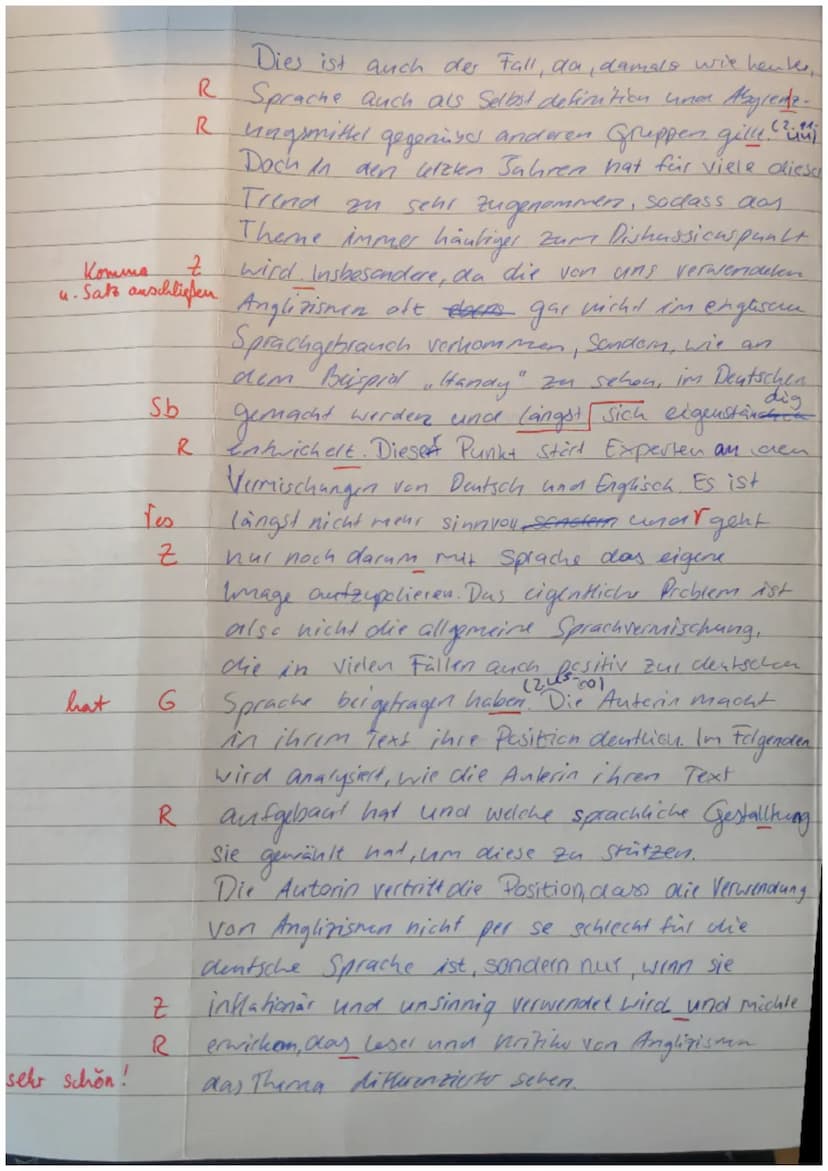 Dies ist auch der Fall, da, damals wie heute,
R Sprache auch als Selbstdefinition und Abgrenz-
R ungsmittel gegenüber anderen Gruppen gillt.
Doch in den letzten Jahren hat für viele dieser
Trend zu sehr zugenommen, sodass das
Thema immer häufiger zum Diskussionspunkt
Komma Z wird. Insbesondere, da die von uns verwendeten
u. Satz anschließen Anglizismen oft gar nicht im englischen
Sprachgebrauch vorkommen, sondern, wie an
dem Beispiel „Handy" zu sehen, im Deutschen
Sb gemacht werden und längst sich eigenständig
R entwickelt. Dieser Punkt stört Experten an den
Vermischungen von Deutsch und Englisch. Es ist
längst nicht mehr sinnvoll sondern und geht
Z nur noch darum mit Sprache das eigene
Image aufzupolieren. Das eigentliche Problem ist
also nicht die allgemeine Sprachvermischung,
die in vielen Fällen auch positiv zur deutschen
hat G Sprache beigetragen haben. Die Autorin macht
in ihrem Text ihre Position deutlich. Im Folgenden
wird analysiert, wie die Autorin ihren Text
R aufgebaut hat und welche sprachliche Gestalltung
sie gewählt hat, um diese zu stützen.
Die Autorin vertritt die Position, dass die Verwendung
von Anglizismen nicht per se schlecht für die
deutsche Sprache ist, sondern nur, wenn sie
Z inflationär und unsinnig verwendet wird und möchte
R erwirken, das Leser und Kritiker von Anglizismen
sehr schön! das Thema differenzierter sehen.